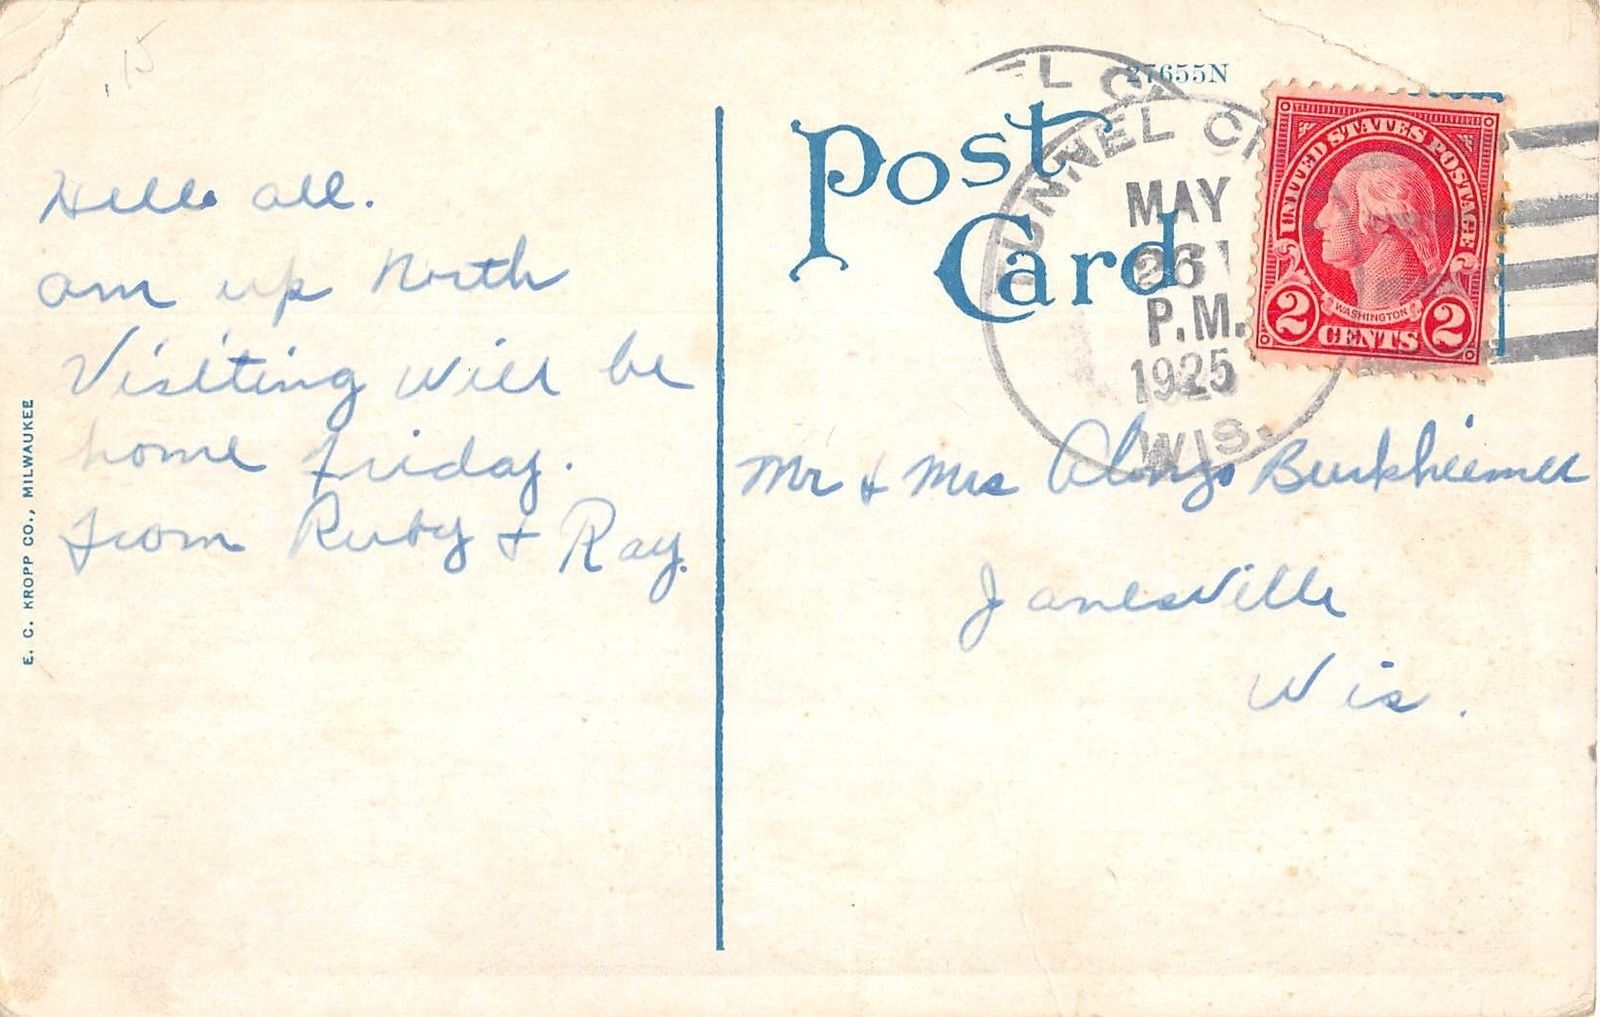 .15
Hello all.
am up North
Visiting will be
home friday.
from Ruby & Ray.
E. C. KROPP CO., MILWAUKEE
27655N
Post
Card
EL C
TUNNEL CI
MAY
26
P.M.
1925
WIS.
UNITED STATES POSTAGE
WASHINGTON
2 CENTS 2
Mr & Mrs Alonzo Burkheimer
Janesville
Wis.